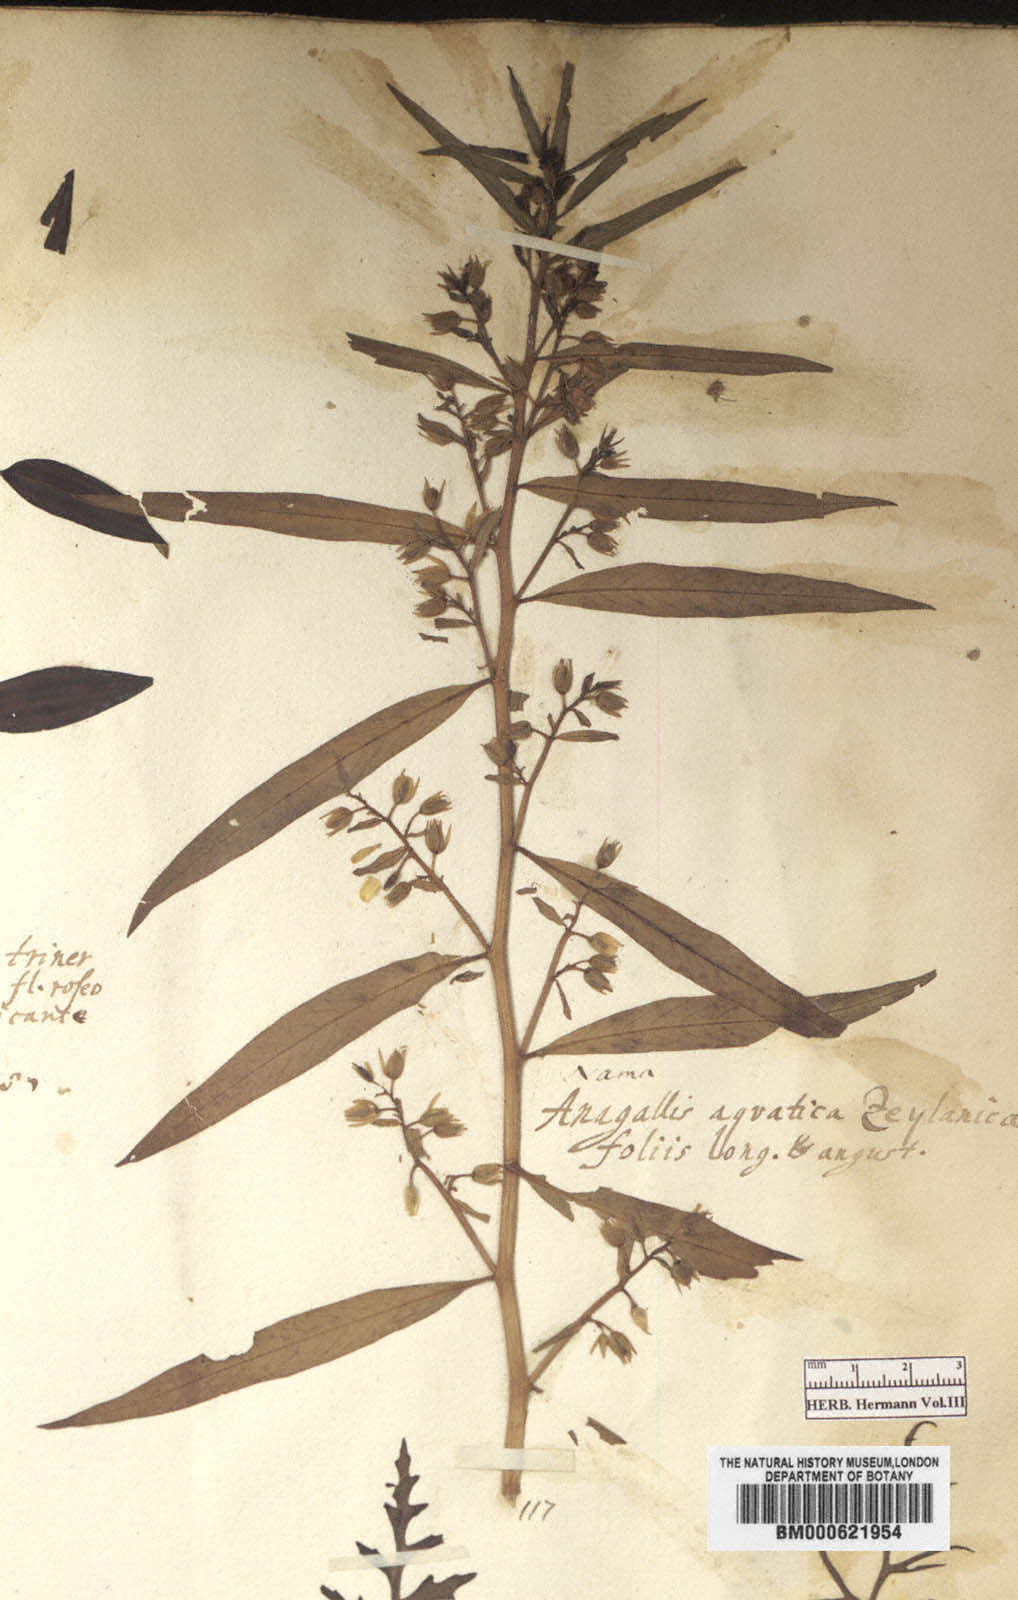 triner
fl. roseo
cante
Nama
Anagallis aquatica Zeylanica
foliis long. & angust.
mm 1 2 3
HERB. Hermann Vol.III
THE NATURAL HISTORY MUSEUM,LONDON
DEPARTMENT OF BOTANY
BM000621954
117